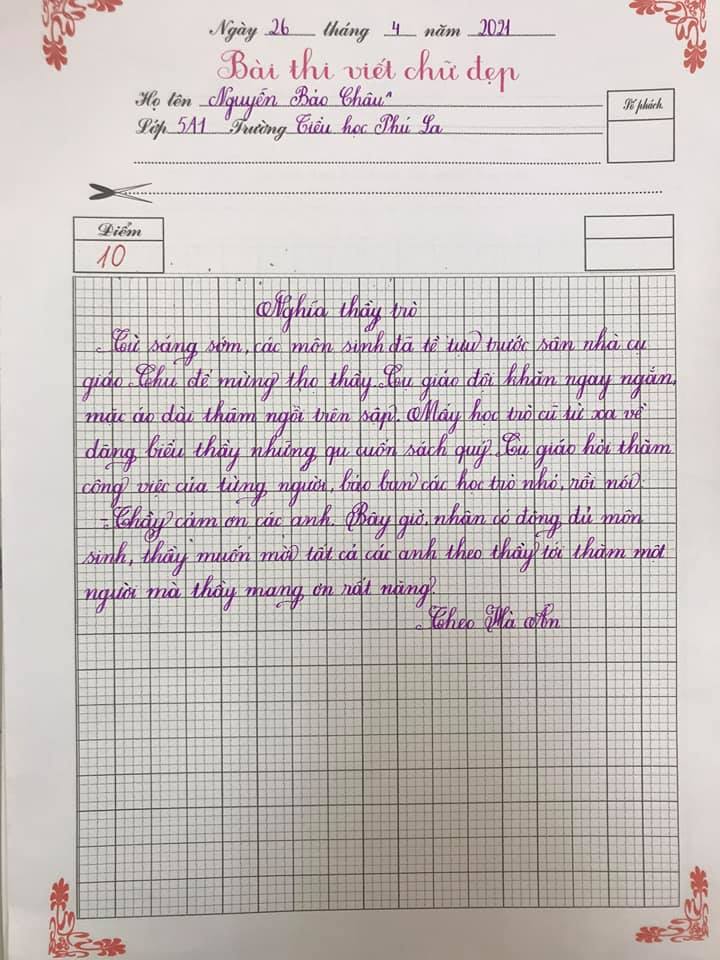 Ngày 26 tháng 4 năm 2021
Bài thi viết chữ đẹp
Họ tên Nguyễn Bảo Châu
Số phách
Lớp 5A1 Trường Tiểu học Phú La
Điểm
10
Nghĩa thầy trò
Từ sáng sớm, các môn sinh đã tề tựu trước sân nhà cụ
giáo Chu để mừng thọ thầy. Cụ giáo đội khăn ngay ngắn,
mặc áo dài thâm ngồi trên sập. Mấy học trò cũ từ xa về
dâng biếu thầy những qu cuốn sách quý. Cụ giáo hỏi thăm
công việc của từng người, bảo ban các học trò nhỏ, rồi nói:
- Thầy cảm ơn các anh. Bây giờ, nhân có đông đủ môn
sinh, thầy muốn mời tất cả các anh theo thầy tới thăm một
người mà thầy mang ơn rất nặng.
Theo Hà Ân